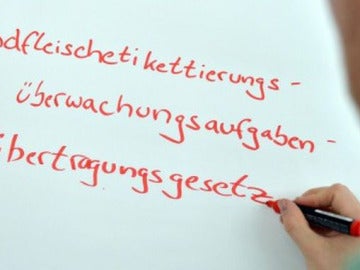 dfleischetikettierungs-
überwachungsaufgaben-
übertragungsgesetz